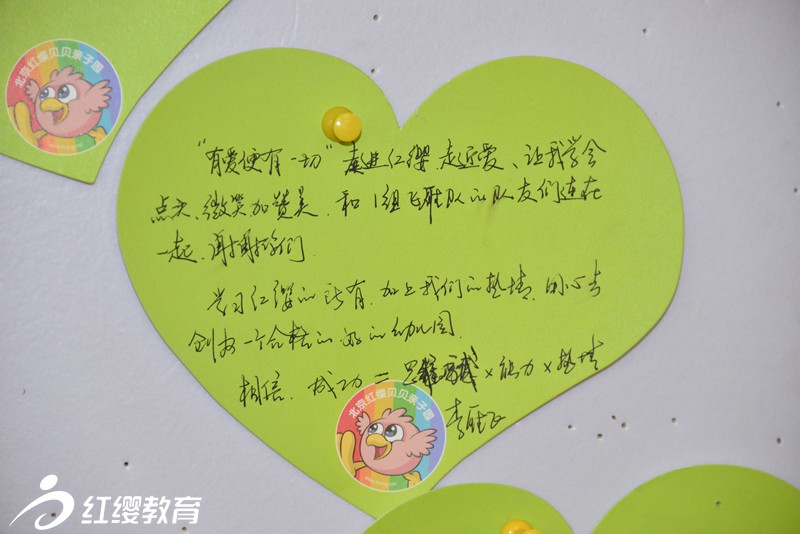 北京红缨贝贝亲子园
"有爱便有一切"走进红缨、走近爱、让我学会
点头、微笑加赞美、和1组飞雁队的队友们连在
一起、谢谢你们
学习红缨的所有、加上我们的热情、用心去
创办一个合格的 的幼儿园
相信、成功= ×能力×热情
北京红缨贝贝亲子园
红缨教育